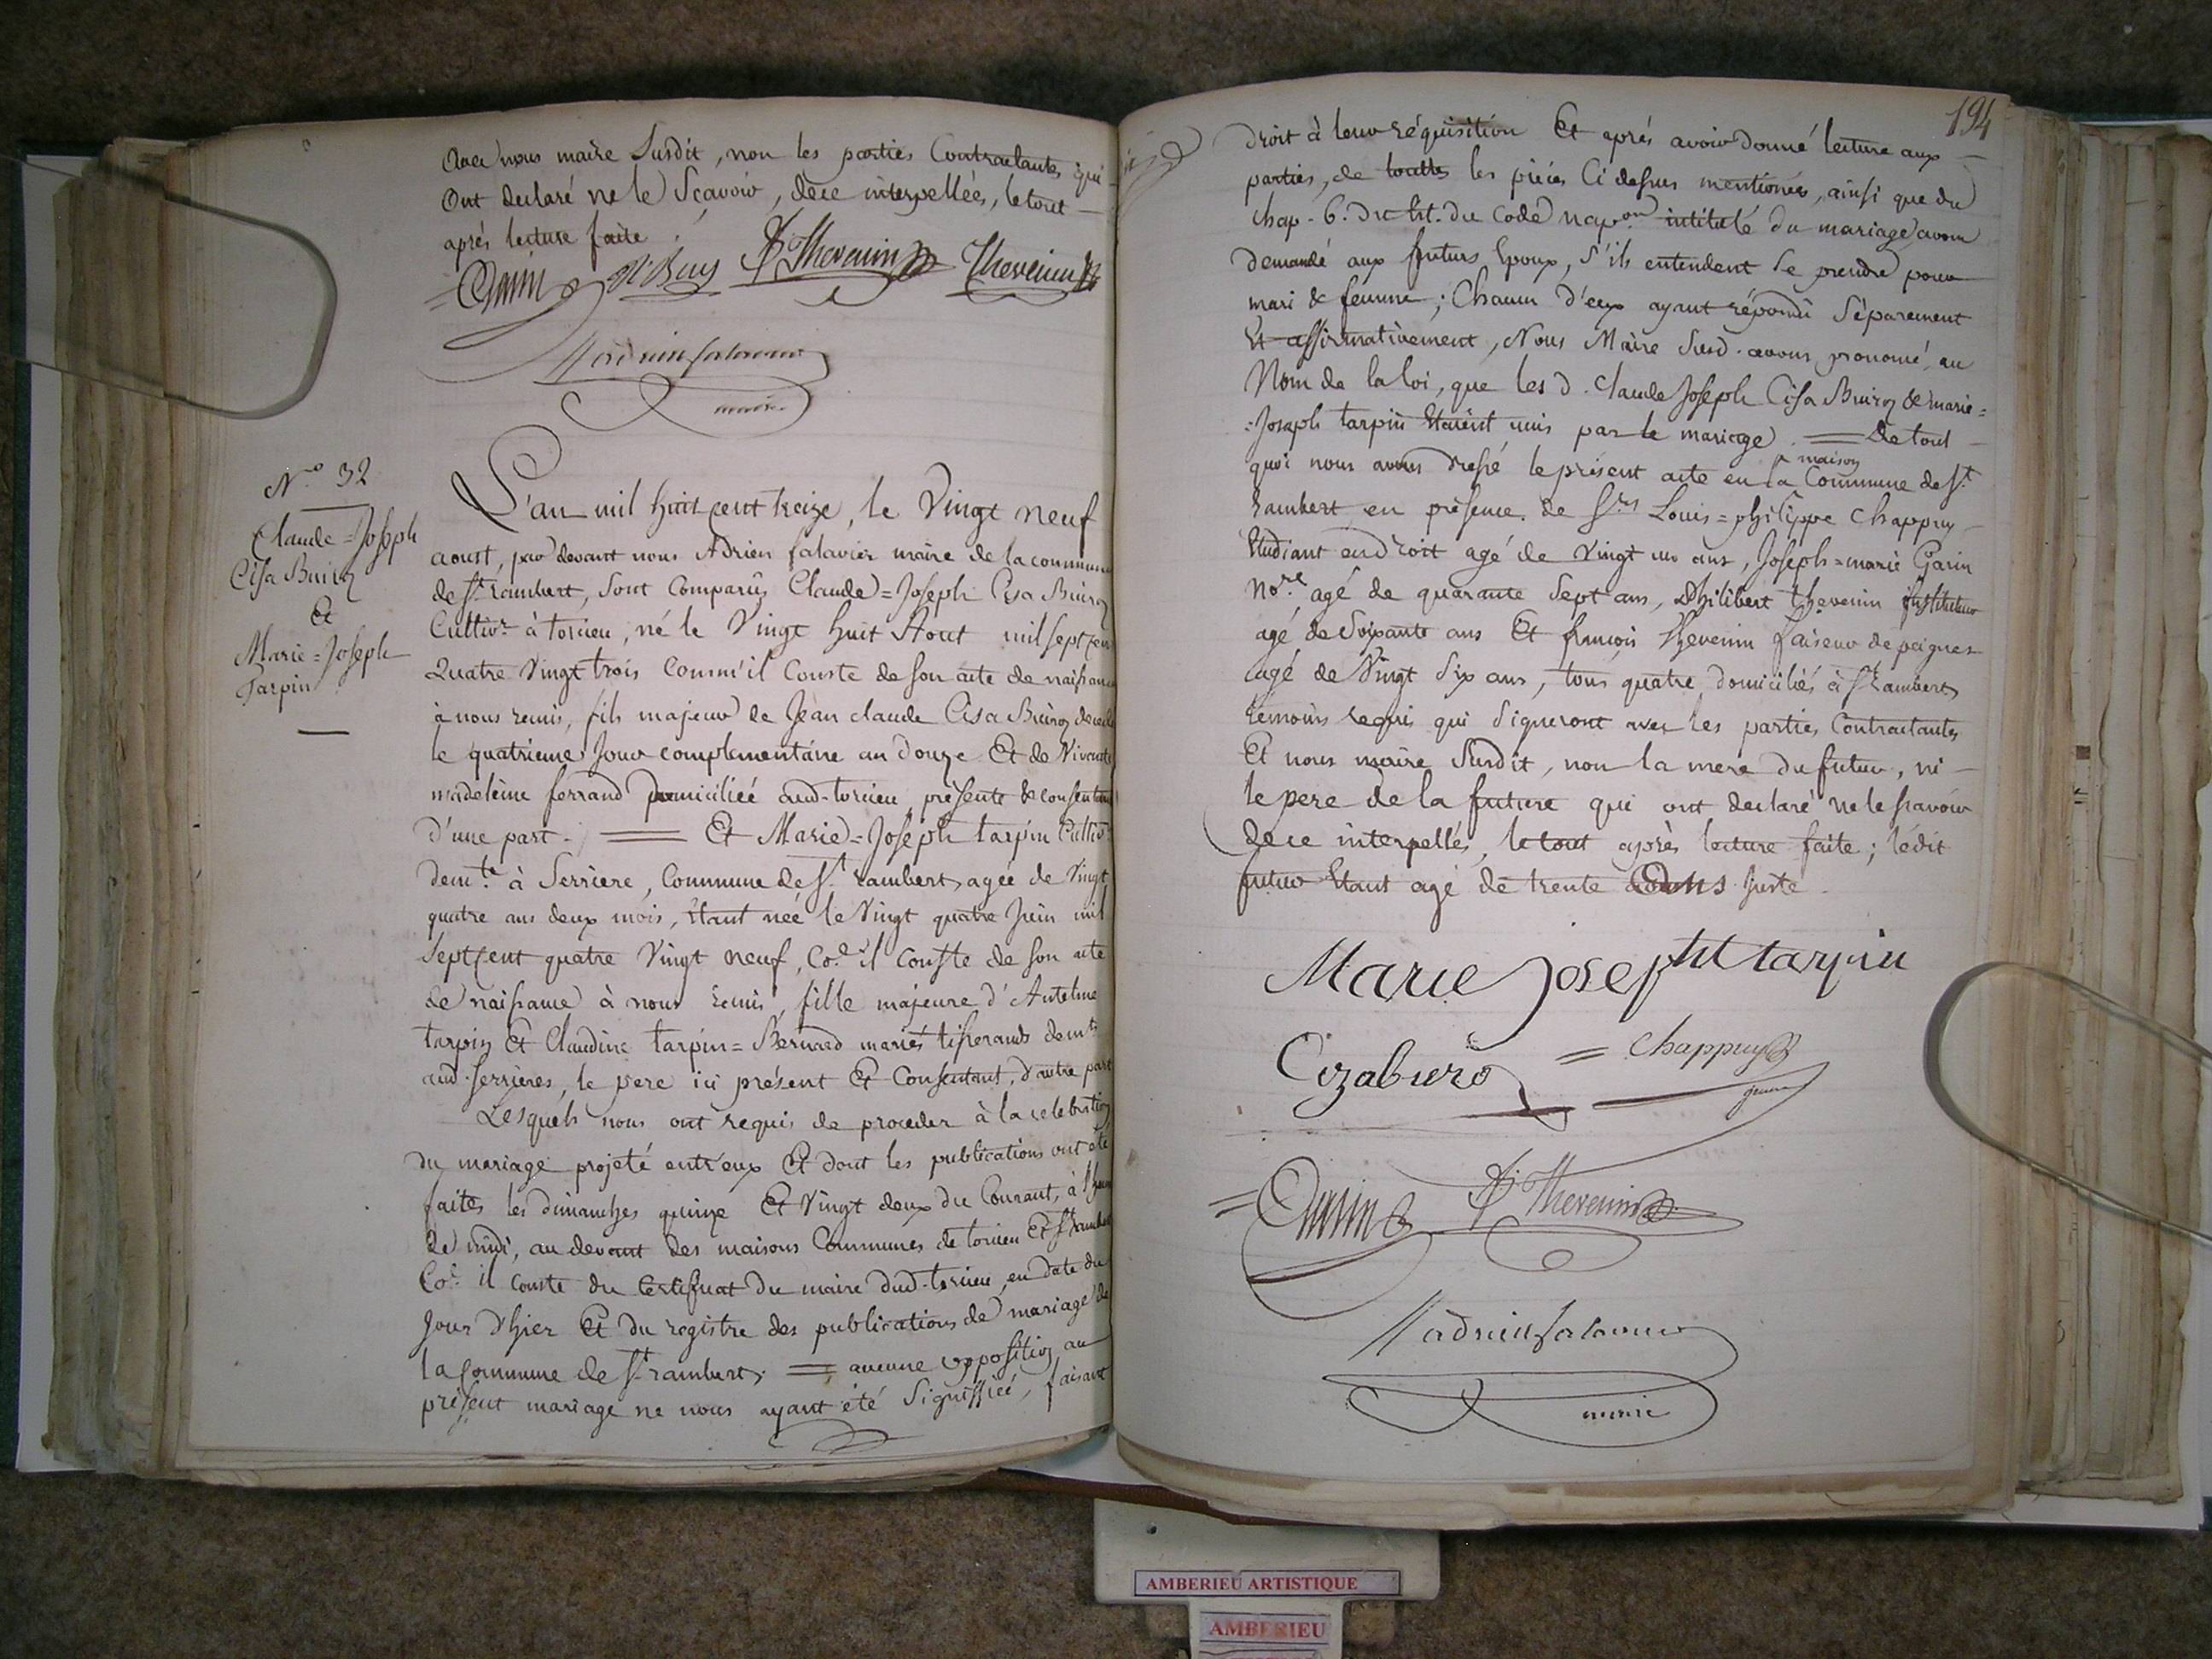 avec nous maire Susdit, non les parties Contractantes qui
Ont declaré ne le Scavoir, dece interpellées, le tout
après lecture faite.
Garin Buy Ph Thevenin Thevenin
adrien falavier
maire
N.o 32
Claude=Joseph
Cisa Buiron
Et
Marie=Joseph
Tarpin
L'an mil huit cent treize, le Vingt neuf
aoust, par devant nous Adrien falavier maire de la commune
de St. rambert, sont Comparûs Claude=Joseph Cisa Buiron
Cultivr. à torcieu, né le Vingt huit Aout mil sept cent
Quatre Vingt trois Comm'il Conste de son acte de naissance
à nous remis, fils majeur de Jean claude Cisa Buiron decedé
le quatrieme Jour complementaire an douze Et de Vivante
madeleine ferrand Domiciliée aud-torcieu, présente & consentante
d'une part. Et Marie=Joseph tarpin Cultivce
demte. à Serriere, Commune de St. rambert, agée de Vingt
quatre ans deux mois, étant née le Vingt quatre Juin mil
Sept cent quatre Vingt neuf, Coe. il Conste de son acte
de naissance à nous remis, fille majeure d'Antelme
tarpin Et Claudine tarpin=Bernard mariés tisserands demts
aud. serrieres, le pere ici présent Et Consentant, d'autre part
Lesquels nous ont requis de proceder à la celebration
du mariage projeté entr'eux Et dont les publications ont été
faites les dimanches quinze Et Vingt deux du Courant, à l'heure
de midi, au devant des maisons Communes de torcieu Et St rambert
Coe. il conste du Certificat du maire dud-torcieu, en date du
Jour d'hier Et du registre des publications de mariage de
la Commune de St. rambert. = aucune opposition au
présent mariage ne nous ayant été Signiffiée, faisant
194
droit à leur réquisition Et après avoir donné lecture aux
parties, de touttes les pièces Ci dessus mentionées, ainsi que du
chap. 6. du tit. du Code napon. intitulé du mariage avons
demandé aux futurs Epoux, s'ils entendent se prendre pour
mari & femme; Chacun d'eux ayant répondû Séparement
Et affirmativement, Nous Maire Susd. avons prononcé, au
Nom de la loi, que les d. Claude Joseph Cisa Buiron & marie=
=Joseph tarpin Etaient unis par le mariage. = De tout
quoi nous avons dressé le présent acte en la maison Commune de St.
rambert, en présence de Srs Louis=philippe Chappuy
Etudiant en droit agé de Vingt un ans, Joseph=marie Garin
Nore. agé de quarante Sept ans, Philibert thevenin Instituteur
agé de Soixante ans Et françois thevenin faiseur de peignes
agé de Vingt Six ans, tous quatre domiciliés à St rambert,
temoins requis qui Signeront avec les parties Contractantes
Et nous maire Susdit, non la mere du futur, ni
le pere de la future qui ont declaré ne le scavoir
dece interpellés, le tout après lecture faite; lédit
futur Etant agé de trente ans Juste.
Marie Joseph tarpin
Cizaburo = Chappuy
jeune
Garin Ph Thevenin
adrien falavier
maire
AMBERIEU ARTISTIQUE
AMBERIEU